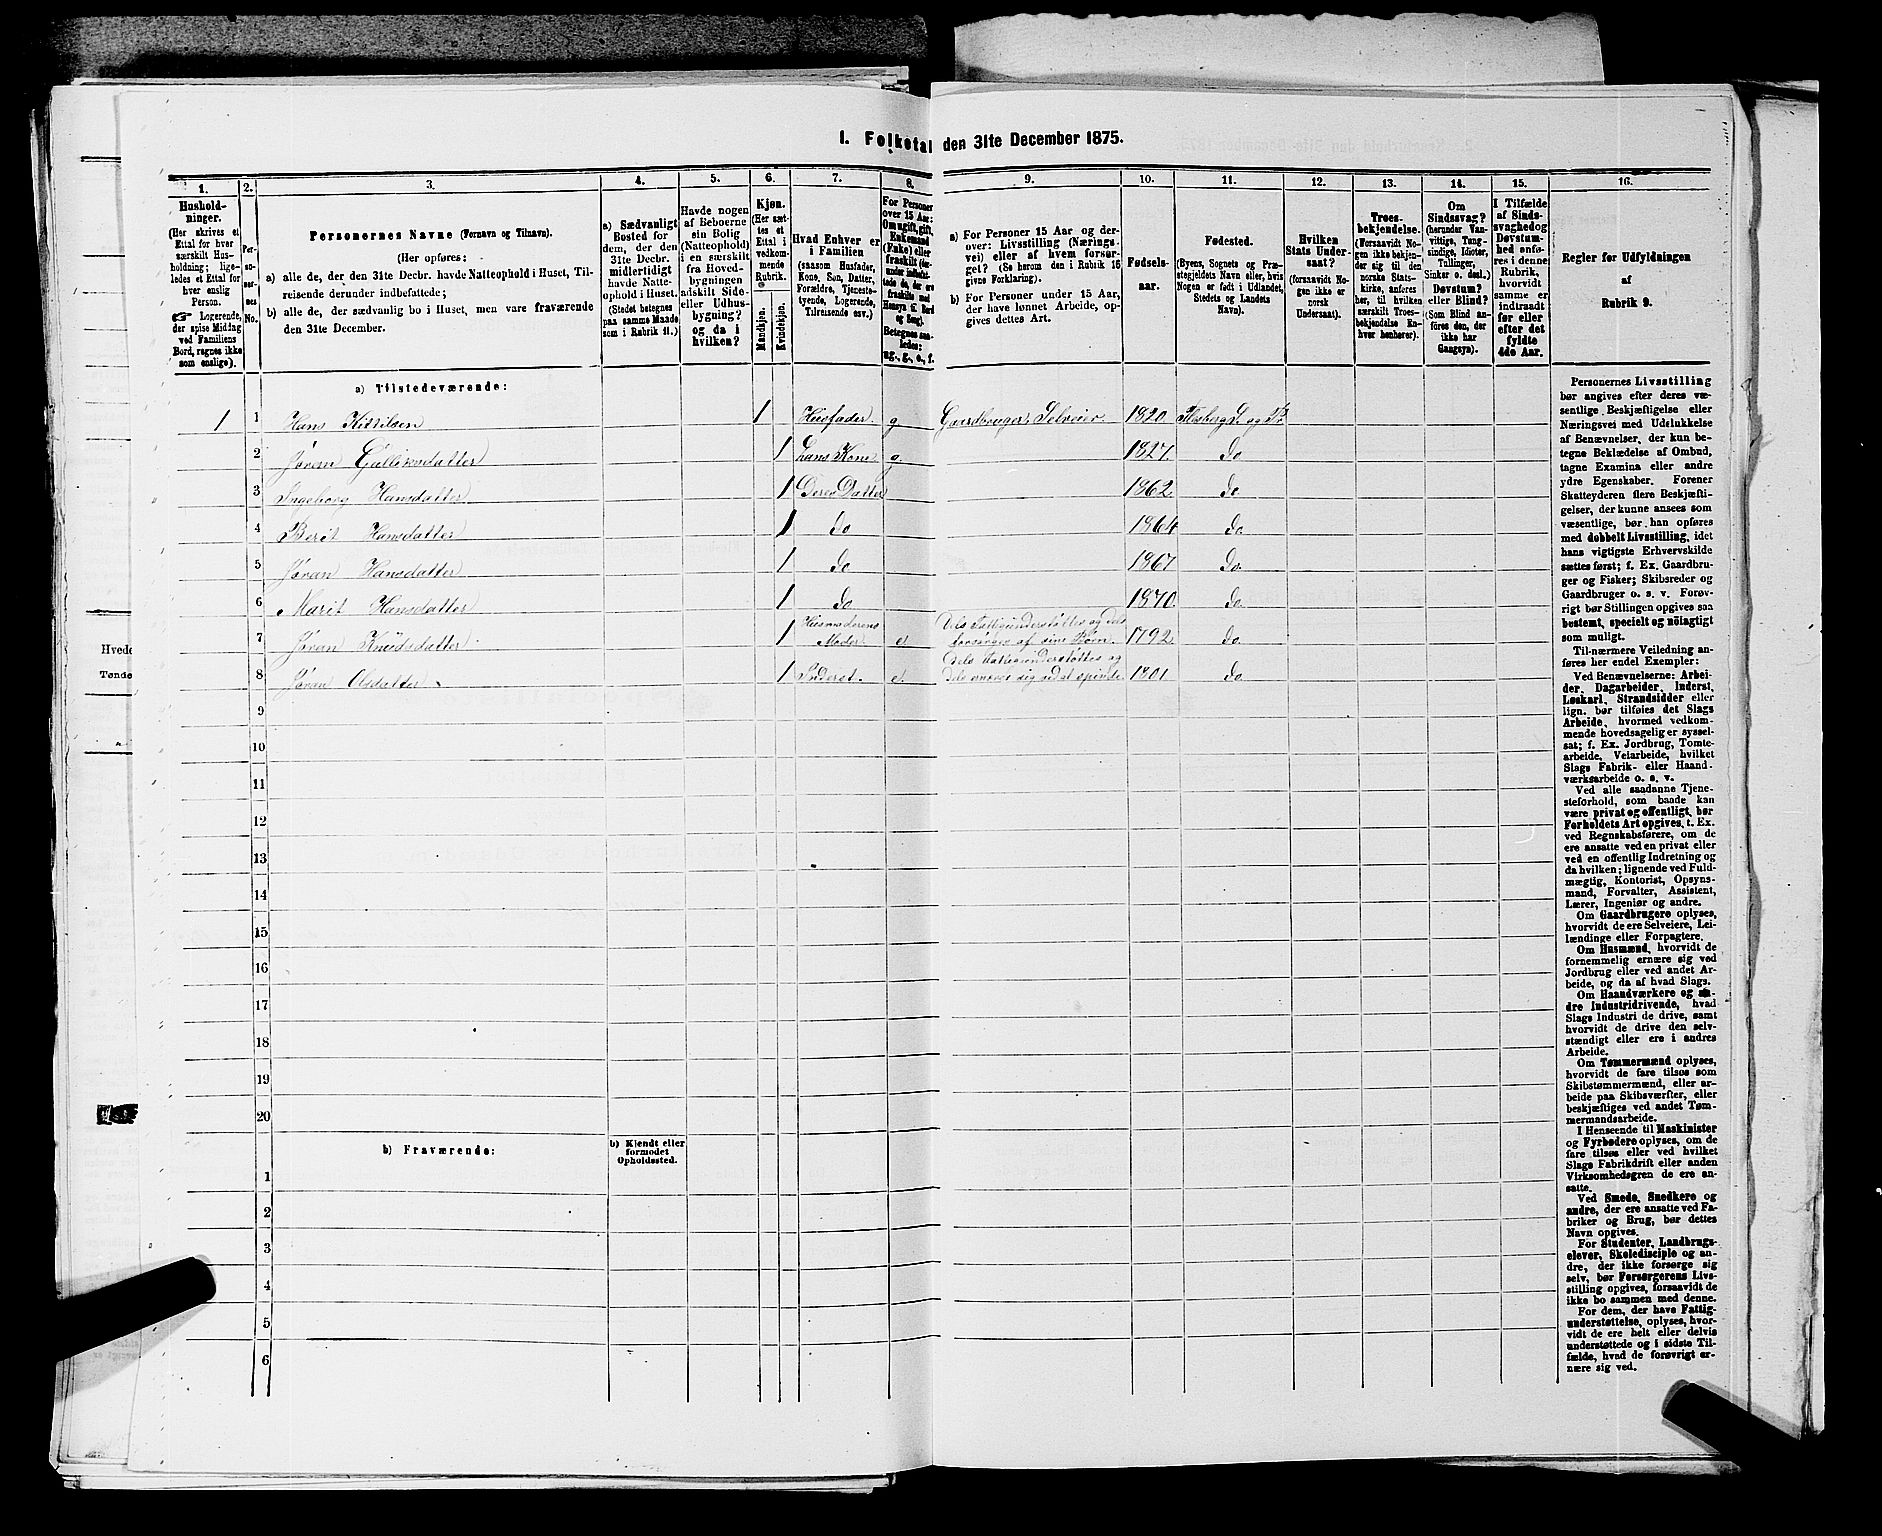 I. Folketal den 31te December 1875.
1. 2. 3. 4. 5. 6. 7. 8. 9. 10. 11. 12. 13. 14. 15. 16.
Hushold-
ninger.
(Her skrives et
Ettal for hver
særskilt Hus-
holdning; lige-
ledes et Ettal for
hver enslig
Person.
Logerende,
der spise Middag
ved Familiens
Bord, regnes ikke
som enslige).
Per-
so-
ner-
nes
No.
Personernes Navne (Fornavn og Tilnavn).
(Her opføres:
a) alle de, der den 31te Decbr. havde Natteophold i Huset, Til-
reisende derunder indbefattede;
b) alle de, der sædvanlig bo i Huset, men vare fraværende
den 31te December.
a) Sædvanligt
Bosted for
dem, der den
31te Decbr.
midlertidigt
havde Natte-
ophold i Huset.
(Stedet betegnes
paa samme Maade
som i Rubrik 11.)
Havde nogen
af Beboerne
sin Bolig
(Natteophold)
i en særskilt
fra Hoved-
bygningen
adskilt Side-
eller Udhus-
bygning?
og da i
hvilken?
Kjøn.
(Her sæt-
tes et
Ettal i
vedkom-
mende
Rubrik.
Mandkjøn.
Kvindekjøn.
Hvad Enhver er
i Familien
(saasom Husfader,
Kone, Søn, Datter,
Forældre, Tjeneste-
tyende, Logerende,
Tilreisende osv.)
For Personer
over 15 Aar:
Om ugift, gift,
Enkemand
(Enke) eller
fraskilt
Betegnes saa-
ledes:
ug., g., e., f.
a) For Personer 15 Aar og der-
over: Livsstilling (Nærings-
vei) eller af hvem forsør-
get? (Se herom den i Rubrik 16
givne Forklaring).
b) For Personer under 15 Aar,
der have lønnet Arbeide, op-
gives dettes Art.
Fødsels-
aar.
Fødested.
(Byens, Sognets og Præ-
stegjeldets Navn eller, hvis
Nogen er født i Udlandet,
Stedets og Landets
Navn).
Hvilken
Stats Under-
saat?
(forsaavidt No-
gen ikke er
norsk
Undersaat).
Troes-
bekjendelse.
(Forsaavidt No-
gen ikke bekjen-
der sig til den
norske Stats-
kirke, anføres
her, til hvilken
særskilt Troes-
bekjendelse En-
hver henhører).
Om
Sindssvag?
(herunder Van-
vittige, Tung-
sindige, Idioter,
Tullinger,
Sinker o. desl.)
Døvstum?
eller Blind?
(Som Blind an-
føres den, der
ikke har
Gangsyn).
I Tilfælde
af Sinds-
svaghed og
Døvstum-
hed anfør-
es i denne
Rubrik,
hvorvidt
samme er
indtraadt
før eller
efter det
fyldte
4de Aar.
Regler for Udfyldningen
af
Rubrik 9.
a) Tilstedeværende:
1 1 Hans Kittilsen 1 Husfader g Gaardbruger, Selveier. 1820. Flesberg S. og Pr.
2 Jøran Gulliksdatter 1 hans Kone g 1827. do
3 Ingeborg Hansdatter 1 Deres Datter 1862. do
4 Berit Hansdatter 1 do 1864 do.
5 Jøran Hansdatter 1 do 1867 do.
6 Marit Hansdatter 1 do 1870. do.
7 Jøran Knudsdatter. 1 Husmoderens Moder e Dels Fattigunderstøttes og dels forsørges af sine Børn. 1792. do.
8 Jøran Olsdatter 1 Inderst. e Dels Fattigunderstøttes og dels ernærer sig ved at spinde. 1801. do.
9
10
11
12
13
14
15
16
17
18
19
20
b) Fraværende:
b) Kjendt eller
formodet
Opholdssted.
1
2
3
4
5
6
Personernes Livsstilling
bør angives efter deres væ-
sentlige Beskjæftigelse eller
Næringsvei med Udelukkelse
af Benævnelser, der kun be-
tegne Beklædelse af Ombud,
tagne Examina eller andre
ydre Egenskaber. Forener
Skatteyderen flere Beskjæfti-
gelser, der kunne ansees som
væsentlige, bør han opføres
med dobbelt Livsstilling, idet
hans vigtigste Erhvervskilde
sættes først; f. Ex. Gaardbru-
ger og Fisker; Skibsreder og
Gaardbruger o. s. v. Forøv-
rigt bør Stillingen opgives saa
bestemt, specielt og nøiagtigt
som muligt.
Til nærmere Veiledning an-
føres her endel Exempler:
Ved Benævnelserne: Arbei-
der, Dagarbeider, Inderst,
Løskarl, Strandsidder eller
lign. bør tilføies det Slags
Arbeide, hvormed vedkom-
mende hovedsagelig er syssel-
sat; f. Ex. Jordbrug, Tomte-
arbeide, Veiarbeide, hvilket
Slags Fabrik- eller Haand-
værksarbeide o. s. v.
Ved alle saadanne Tjene-
steforhold, som baade kan
være privat og offentligt, bør
Forholdets Art opgives, t. Ex.
ved Regnskabsførere, om de
ere ansatte ved en privat eller
ved en offentlig Indretning og
da hvilken; lignende ved Fuld-
mægtig, Kontorist, Opsyns-
mand, Forvalter, Assistent,
Lærer, Ingeniør og andre.
Om Gaardbrugere oplyses,
hvorvidt de ere Selveiere, Lei-
lændinge eller Forpagtere.
Om Husmænd, hvorvidt de
fornemmelig ernære sig ved
Jordbrug eller ved andet Ar-
beide, og da af hvad Slags.
Om Haandværkere og an-
dre Industridrivende, hvad
Slags Industri de drive, samt
hvorvidt de drive den selv-
stændigt eller ere i andres
Arbeide.
Om Tømmermænd oplyses,
hvorvidt de fare tilsøs som
Skibstømmermænd, eller ar-
beide paa Skibsværfter, eller
beskjæftiges ved andet Tøm-
mermandsarbeide.
I Henseende til Maskinister
og Fyrbødere oplyses, om de
fare tilsøs eller ved hvilket
Slags Fabrikdrift eller anden
Virksomhedsgren de ere an-
satte.
Ved Smede, Snedkere og
andre, der ere ansatte ved Fa-
briker og Brug, bør dettes
Navn opgives.
For Studenter, Landbrugs-
elever, Skoledisciple og an-
dre, der ikke forsørge sig
selv, bør Forsørgerens Livs-
stilling opgives, forsaavidt de
ikke bo sammen med denne.
For dem, der have Fattig-
understøttelse, oplyses, hvor-
vidt de ere helt eller delvis
understøttede og i sidste Til-
fælde, hvad de forøvrigt er-
nære sig ved.
Hvede
Tønde